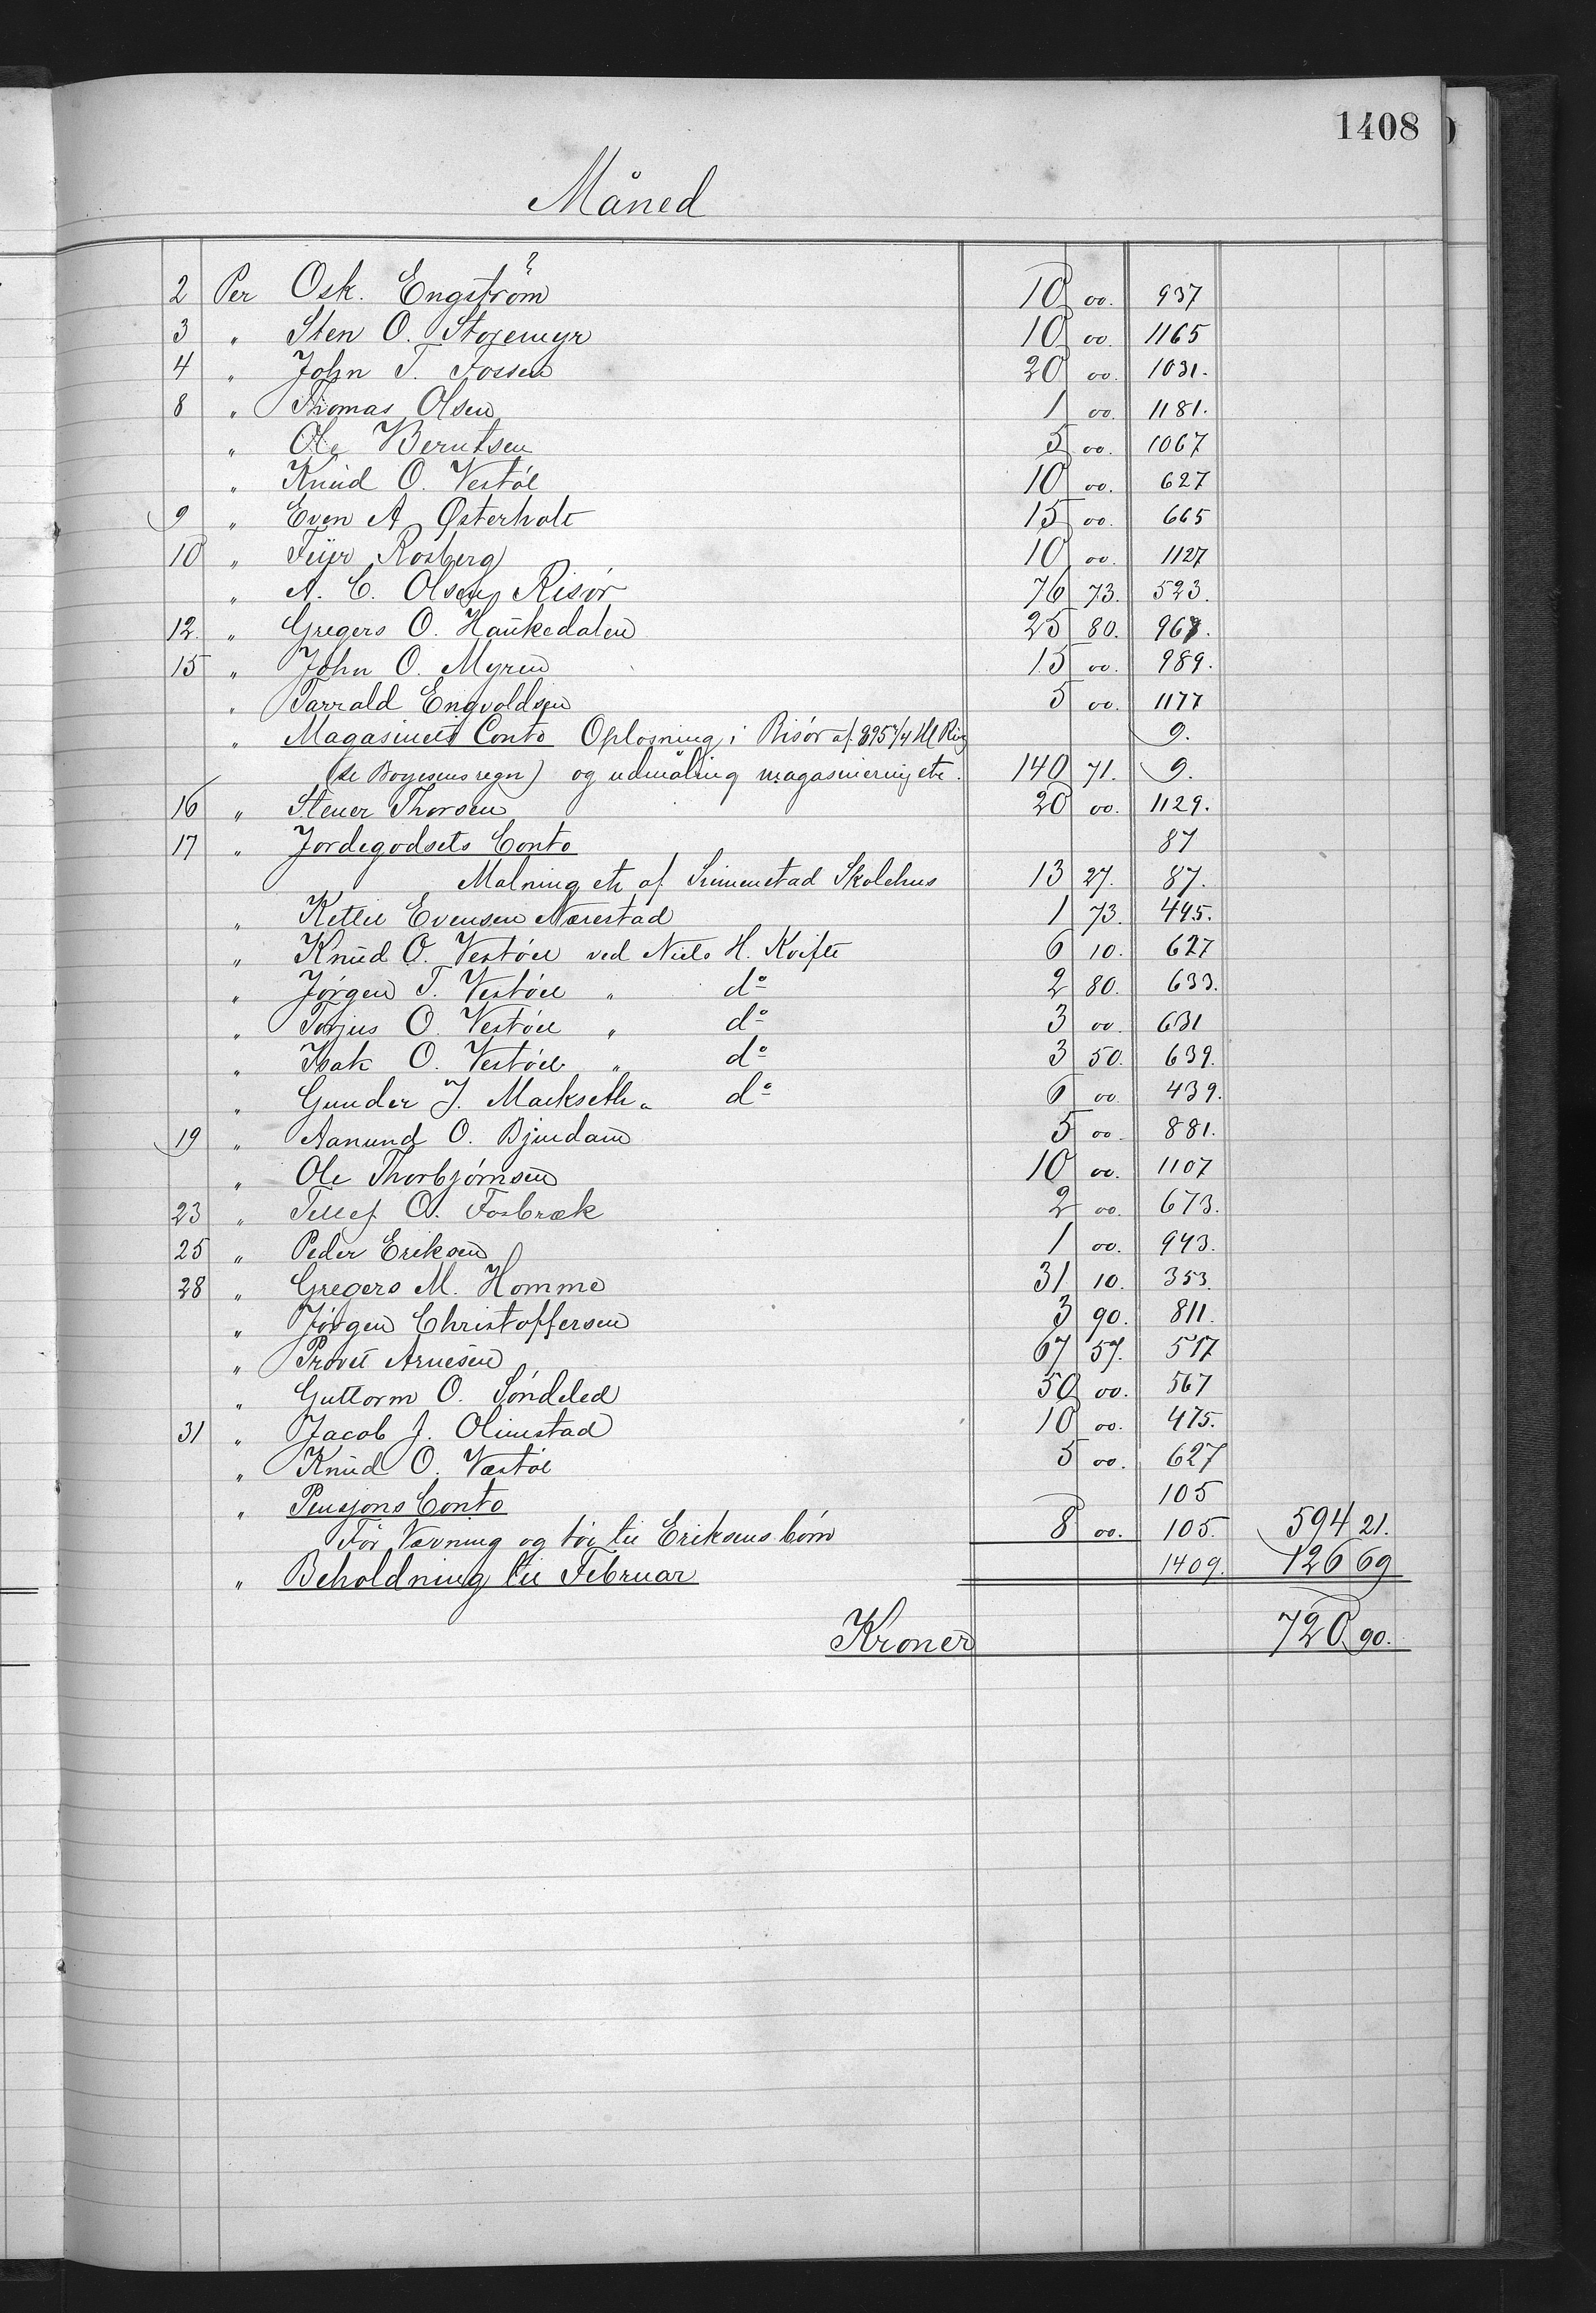 1408
Måned
2 Per Osk. Engström 10 00. 937
3 " Sten O. Storemyr 10 00. 1165
4 " John T. Fossen 20 00. 1031.
8 " Thomas Olsen 1 00. 1181.
" Ole Berntsen 5 00. 1067
" Knud O. Vestöl 10 00. 627
9 " Even A Østerholt 15 00. 665
10 " Rosberg 10 00. 1127
" A. C. Olsen, Risör 76 73. 523.
12. " Gregers O. Haukedalen 25 80. 967.
15 " John O. Myren 15 00. 989.
" Tarrald Engvoldsen 5 00. 1177
" Magasinets Conto Oplosning i Risör af 895 3/4 Hl Rug 9.
(se Boyesens regn) og udmåling magasinering etc. 140 71. 9.
16 " Stener Thorsen 20 00. 1129.
17 " Jordegodsets Conto 87
Malning etc af Simenstad Skolehus 13 27. 87.
" Kettil Evensen Nærestad 1 73. 445.
" Knud O. Vestöl ved Niels H. Kvifte 6 10. 627
" Jörgen T. Vestöl " do 2 80. 633.
" Torjus O. Vestöl " do 3 00. 631
" Isak O. Vestöl " do 3 50. 639.
" Gunder J. Markseth " do 6 00. 439.
19 " Aanund O. Bjindam 5 00. 881.
" Ole Thorbjörnsen 10 00. 1107
23 " Tellef O. Fosbræk 2 00. 673.
25 " Peder Eriksen 1 00. 943.
28 " Gregers M. Homme 31 10. 353
" Jörgen Christoffersen 3 90. 811.
" Provst Arnesen 67 57. 517
" Guttorm O. Söndeled 50 00. 567
31 " Jacob J. Olimstad 10 00. 475.
" Knud O. Vestöl 5 00. 627
" Pensjons Conto 105
For Vævning og töj til Eriksens börn 8 00. 105. 594 21.
" Beholdning til Februar 1409. 126 69
Kroner 720 90.